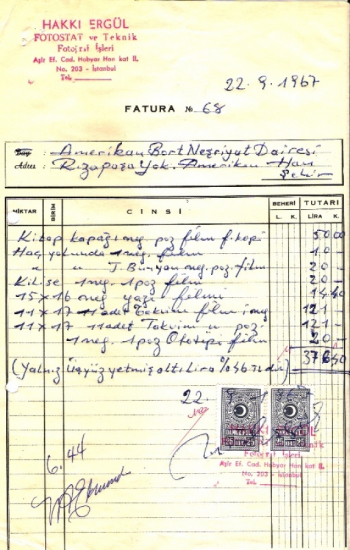 HAKKI ERGÜL
FOTOSTAT ve Teknik
Fotoğraf İşleri
Aşir Ef. Cad. Hobyar Han kat II.
No. 203 - İstanbul
Tel:
22.9.1967
FATURA № 68
Bay: Amerikan Bort Neşriyat Dairesi
Adres: Rızapaşa Yok. Amerikan Han
Şehir
MİKTAR BİRİM CİNSİ BEHERİ TUTARI
L. K. LİRA K.
Kitap kapağı neg. poz film f. kopi 50 00
Haç yolunda 1 neg. film 10 -
J. Bunyon neg. poz. film 20 -
Kilise 1 neg. 1 poz film 20 -
15x16 neg yazı filmi 14 40
11x17 11 adet Takvim film neg 121 -
11x17 11 adet Takvim poz 121 -
1 neg. 1 poz film 20 -
376 40
(Yalnız Üçyüzyetmişaltı Lira
22
25 25 25 25
HAKKI ERGÜL
FOTOSTAT ve Teknik
Fotoğraf İşleri
Aşir Ef. Cad. Hobyar Han kat II.
No. 203 - İstanbul
Tel:
6.44